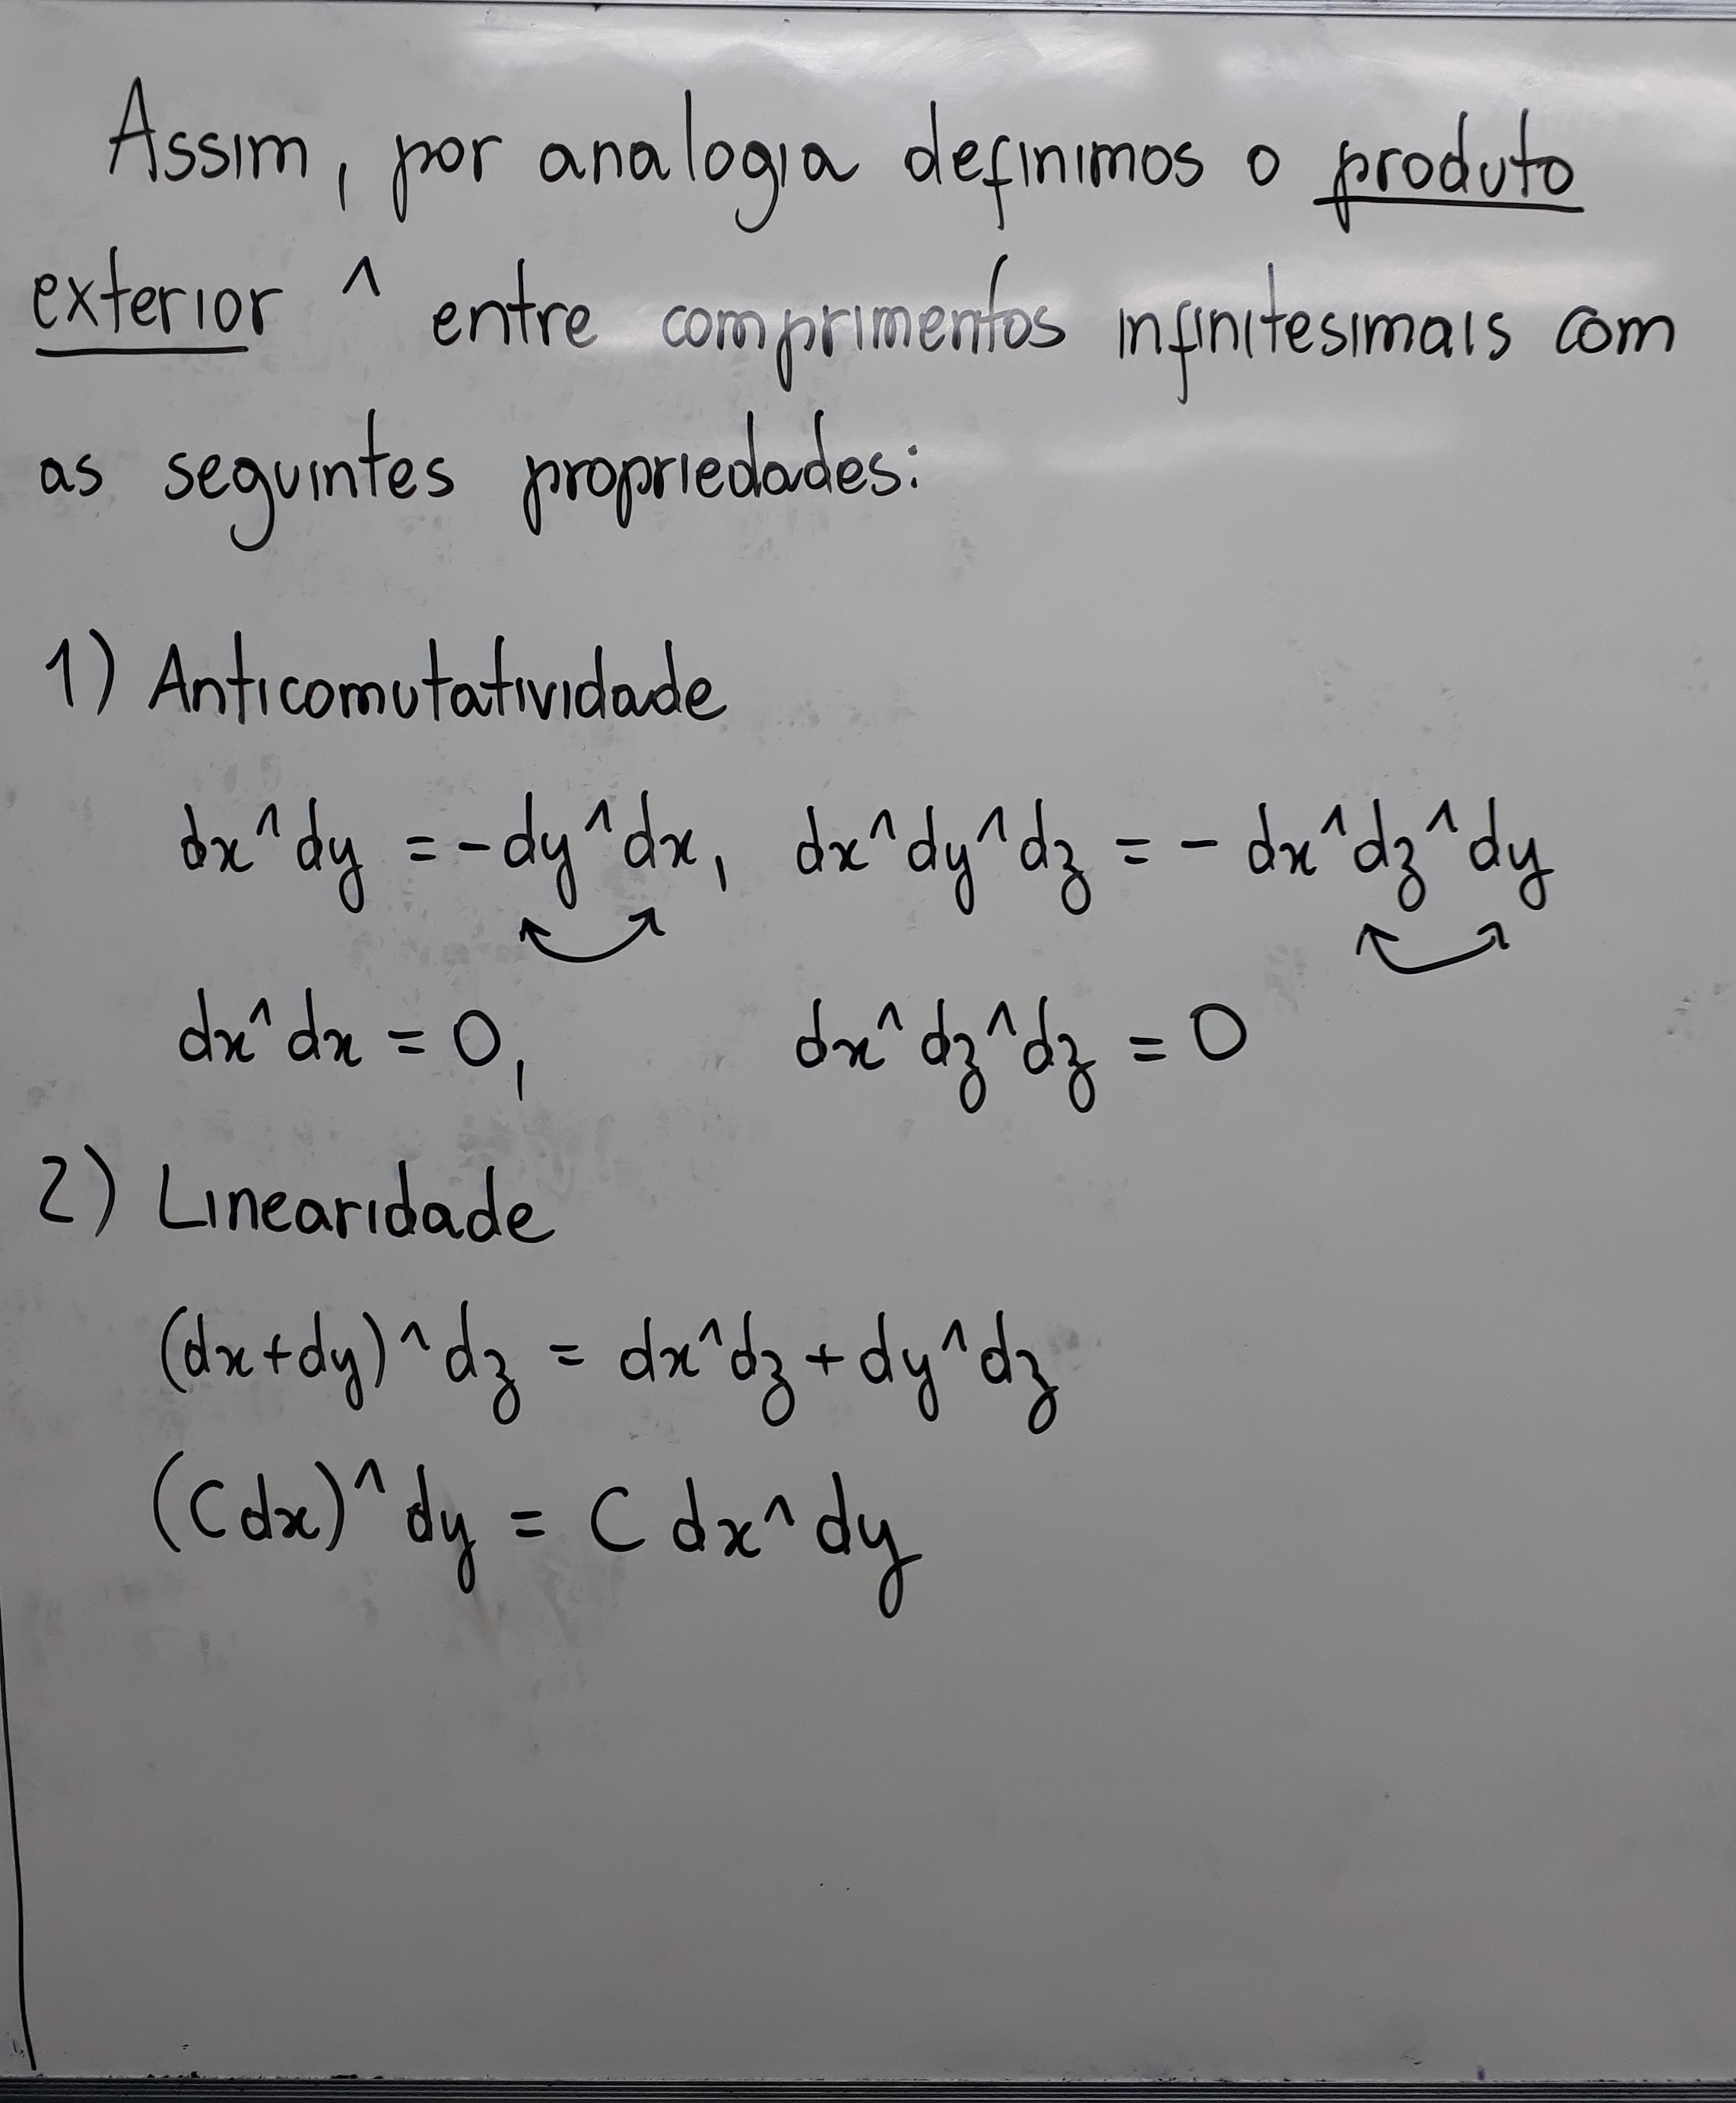 Assim, por analogia definimos o produto
exterior ^ entre comprimentos infinitesimais com
as seguintes propriedades:
1) Anticomutatividade
dx^dy = -dy^dx, dx^dy^dz = - dx^dz^dy
dx^dx = 0, dx^dz^dz = 0
2) Linearidade
(dx+dy)^dz = dx^dz + dy^dz
(Cdx)^dy = C dx^dy